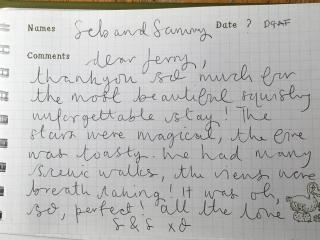 Names Seb and Sammy Date ?
Comments dear Jerry,
thankyou so much for
the most beautiful squishy
unforgettable stay! The
stars were magical, the fire
was toasty. We had many
scenic walks, the views were
breath taking! It was oh,
so, perfect! all the love
S & S xo